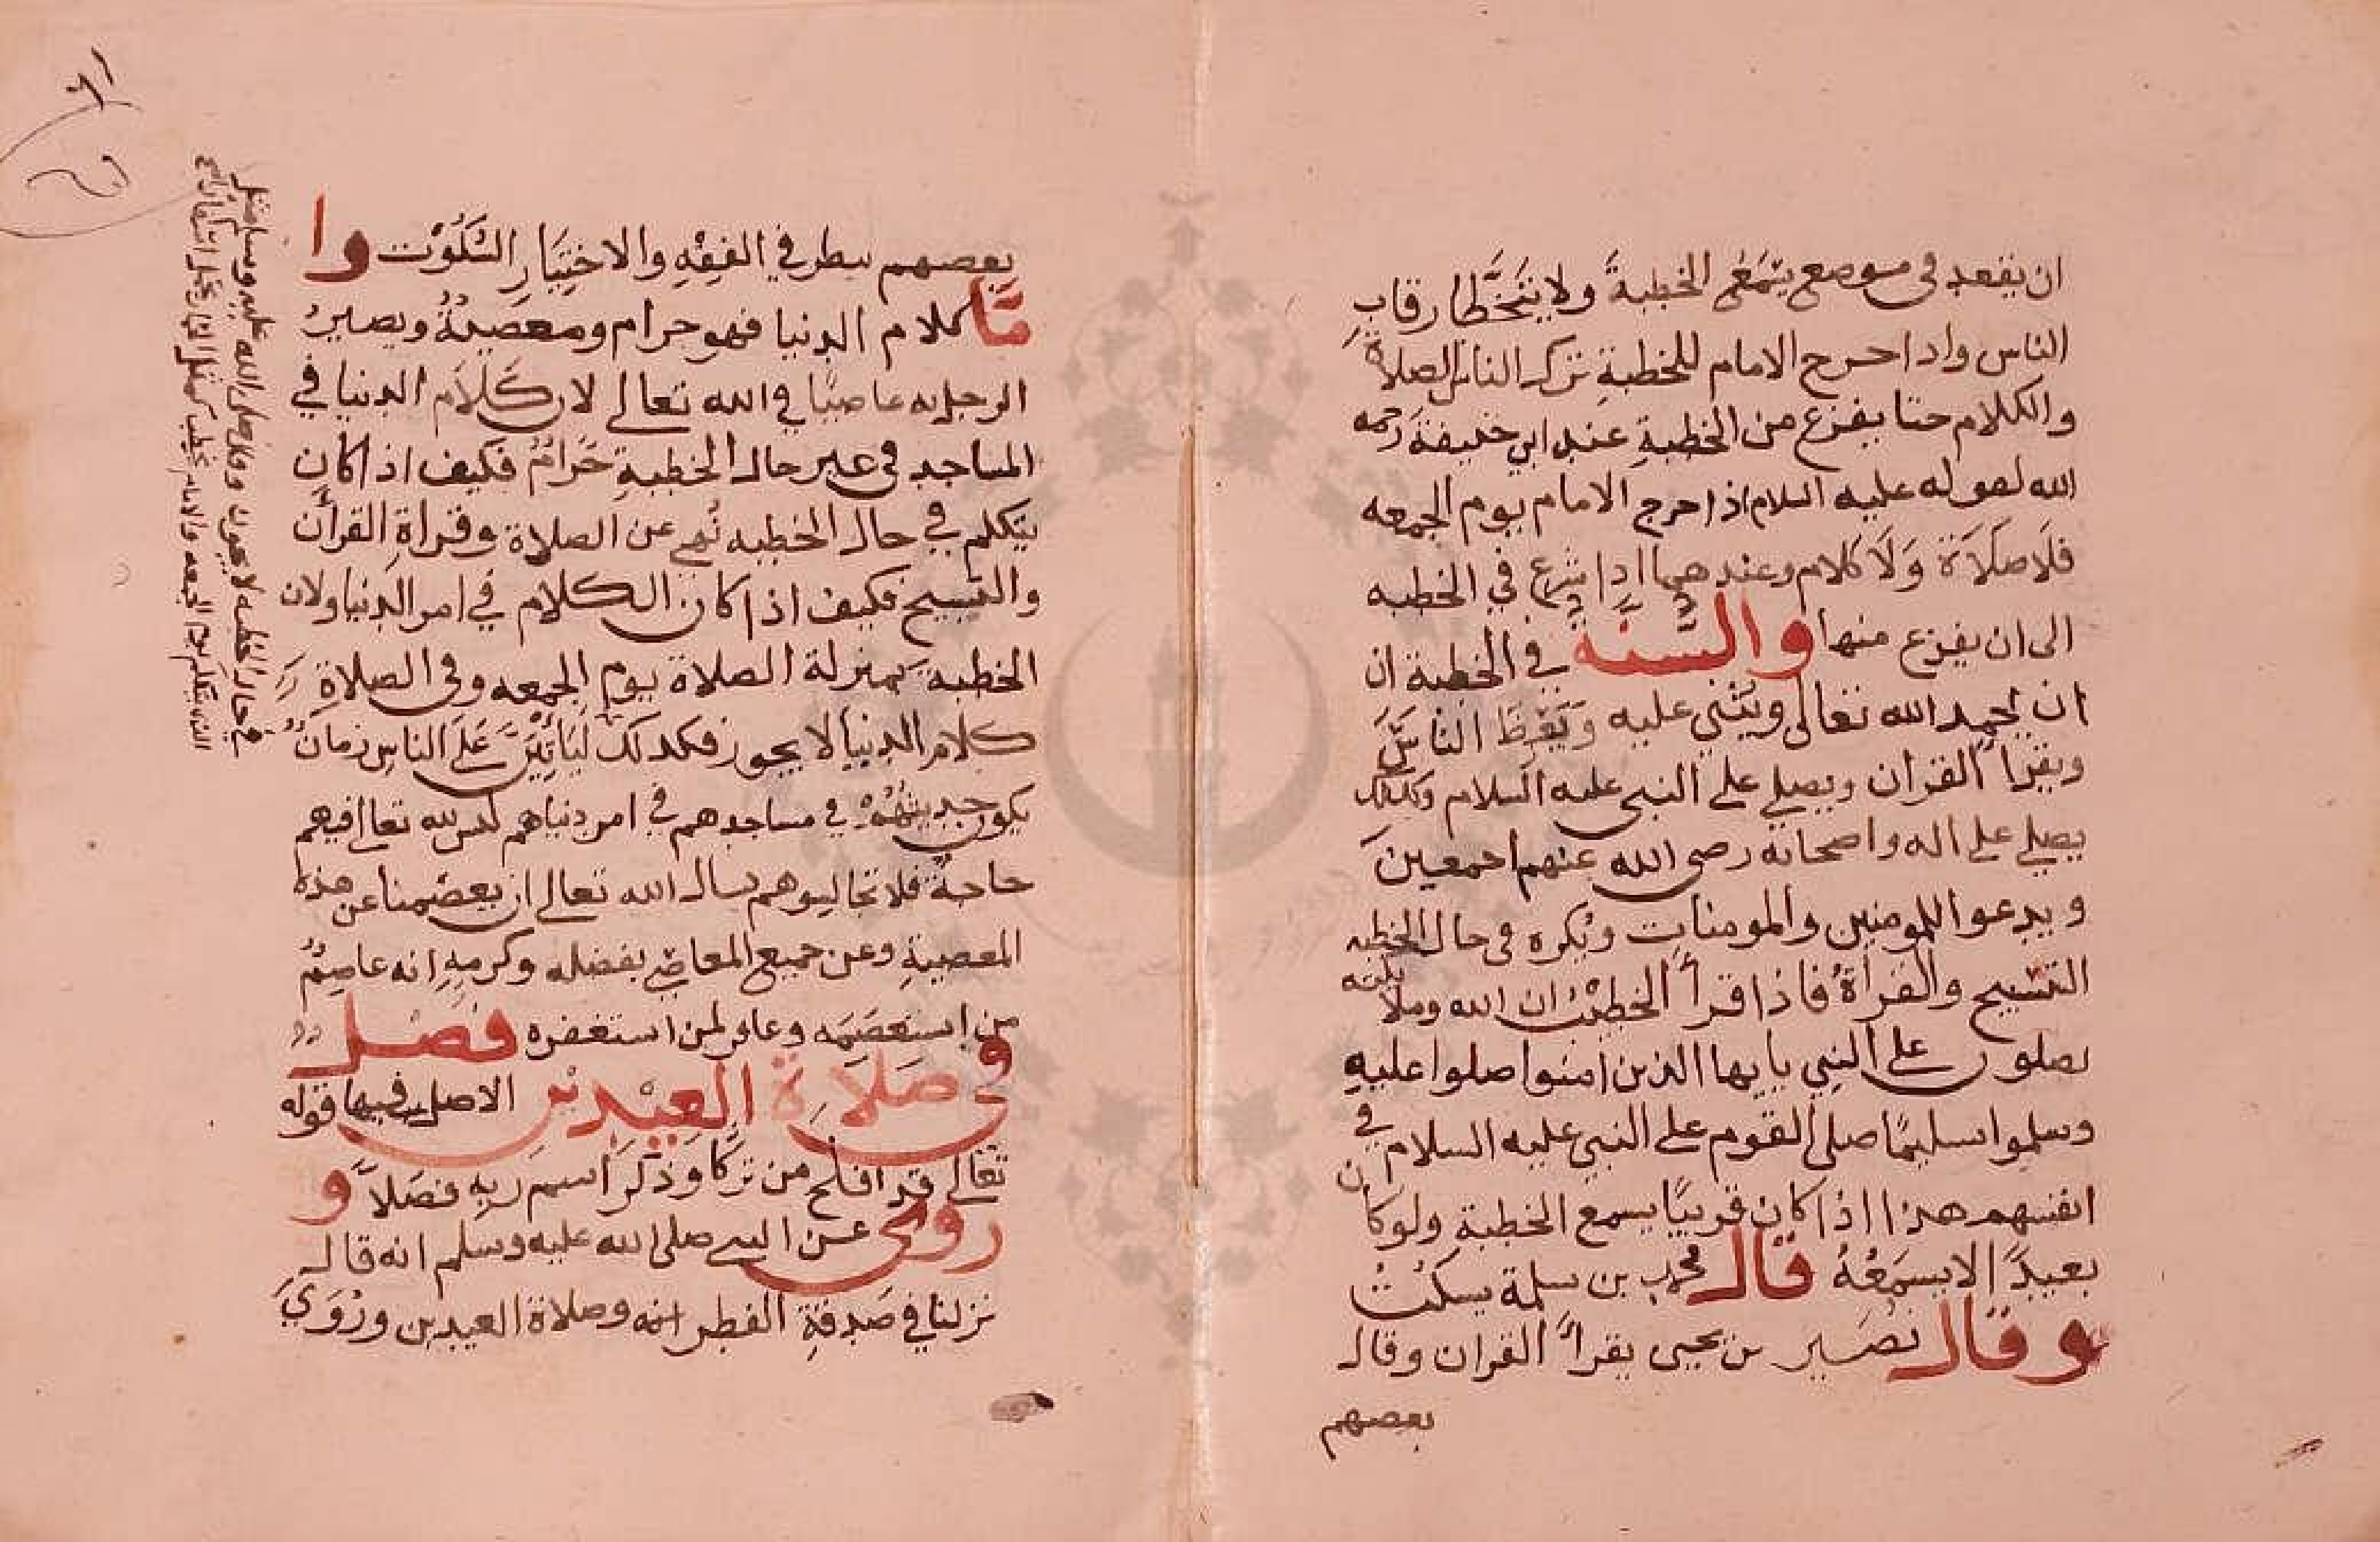 ان يقعد فى موضع يتمعى الخطبة ولا يتخطا رقاب
الناس واذا خرج الامام للخطبة ترك الناس الصلاة
والكلام حتا يفرع من الخطبة عند ابي حنيفة رحمه
الله لقوله عليه السلام اذا خرج الامام يوم الجمعه
فلا صلاة ولا كلام وعندهما اذا شرع في الخطبه
الى ان يفرع منها والسنة في الخطبة ان
ان يحمد الله تعالى ويثني عليه ويعظ الناس
ويقرا القران ويصلي على النبي عليه السلام وكذلك
يصلي على اله واصحابه رضي الله عنهم اجمعين
ويدعوا للمومنين والمومنات ويكره في حال الخطبه
التسبيح والقراة فاذا قرأ الخطيب ان الله وملايكته
يصلون على النبي يا يها الذين امنوا صلوا عليه
وسلموا تسليمًا صلى القوم على النبي عليه السلام في
انفسهم هذا اذا كان قريبًا يسمع الخطبة ولو كان
بعيدًا لا يسمعه قال محمد بن سلمة يسكت
وقال نصير بن يحيى يقرأ القران وقال
بعضهم
بعضهم ينظر في الفقه والاختيار السكوت وا
ما كلام الدنيا فهو حرام ومعصية ويصير
الرجل به عاصيًا في الله تعالى لان كلام الدنيا في
المساجد في غير حال الخطبة حرام فكيف اذا كان
يتكلم في حال الخطبه نهي عن الصلاة وقراة القرأن
والتسبيح فكيف اذا كان الكلام في امر الدنيا ولان
الخطبة بمنزلة الصلاة يوم الجمعه وفي الصلاة
كلام الدنيا لا يجوز فكذلك ليأتين على الناس زمان
يكون حديثهم في مساجدهم في امر دنياهم ليس لله تعالى فيهم
حاجة فلا تجالسوهم نسال الله تعالى ان يعصمنا عن هذه
المعصية وعن جميع المعاصي بفضله وكرمه انه عاصم
من استعصمه وغافر لمن استغفره فصل
في صلاة العيدين الاصل فيها قوله
تعالى قد افلح من تزكا وذكر اسم ربه فصلا و
روى عن النبي صلى الله عليه وسلم انه قال
نزلنا في صدقة الفطر وصلاة العيدين وروي
في حال الخطبه لا يجوز وقال صلى الله عليه وسلم مثل
الذي يتكلم يوم الجمعه والامام يخطب كمثل الحمار يحمل اسفارا